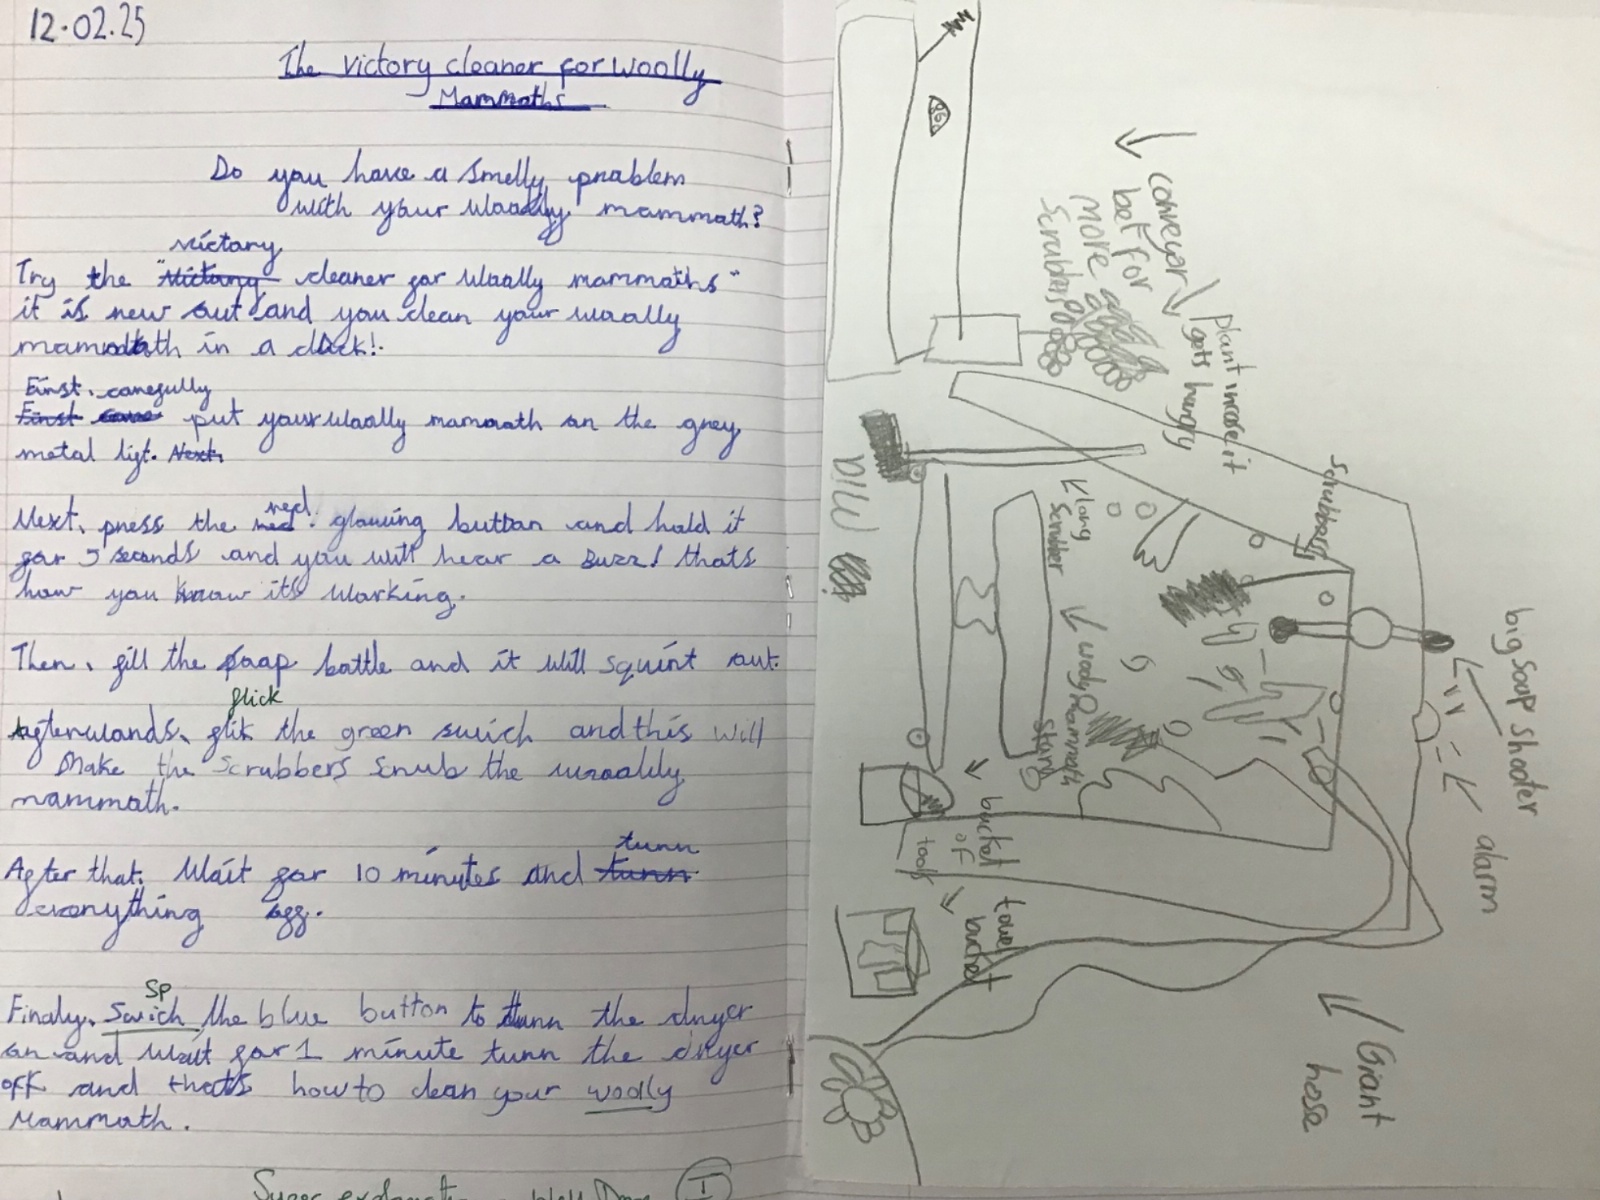 12.02.25
The victory cleaner for woolly
Mammoths
Do you have a smelly problem
with your woolly mammoth?
victory
Try the "victory cleaner for woolly mammoths"
it is new out and you clean your woolly
mammoth in a click!.
First, carefully
First put your woolly mamoath on the grey
metal lift. Next,
Next, press the red glowing button and hold it
for 5 seconds and you will hear a Buzz! thats
how you know its working.
Then, fill the soap bottle and it will squint out.
flick
Afterwards, flik the green swich and this will
make the scrubbers scrub the woolly
mammoth.
turn
After that, Wait for 10 minutes and turn
everything off.
SP
Finaly, Swich the blue button to turn the dryer
on and wait for 1 minute turn the dryer
off and thats how to clean your woolly
Mammoth.
Super Well Done I
conveyer
belt for
More
Scrubbers
plant incase it
gets hungry
scrubbers
long
scrubber
Start
bucket
of
tools
towel
bucket
big soap shooter
alarm
Giant
hose